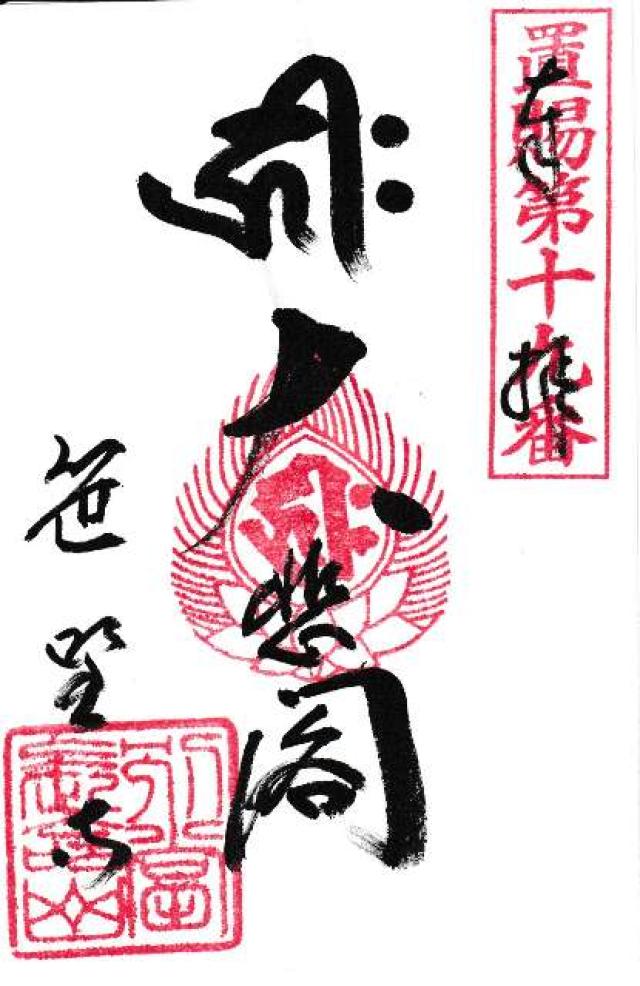 置賜第十九番
奉拝
सः
大悲閣
笹野寺